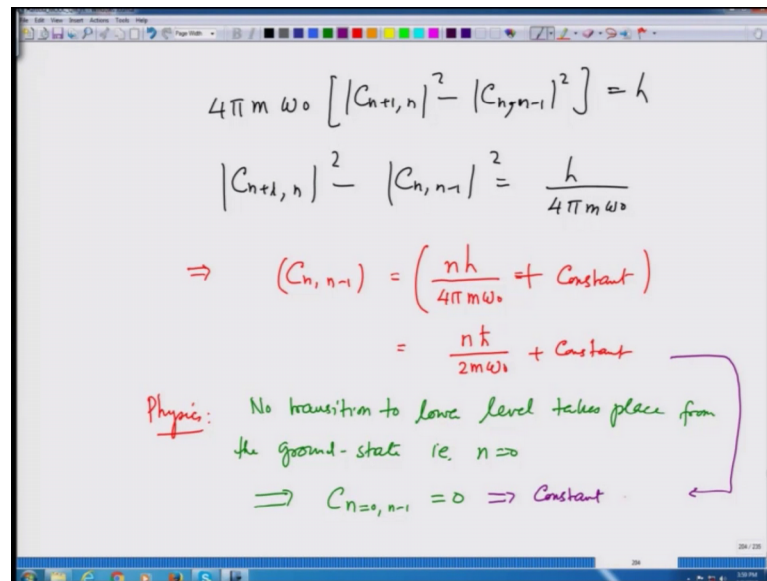 File Edit View Insert Actions Tools Help
Page Width
4π m ω₀ [|Cₙ₊₁,ₙ|² − |Cₙ,ₙ₋₁|²] = h
|Cₙ₊₁,ₙ|² − |Cₙ,ₙ₋₁|² = h / 4π m ω₀
⇒ (Cₙ,ₙ₋₁) = (nh / 4π m ω₀ + Constant)
= nħ / 2m ω₀ + Constant
Physics: No transition to lower level takes place from
the ground-state ie. n=0
⇒ Cₙ₌₀,ₙ₋₁ = 0 ⇒ Constant
204 / 235
204
3:59 PM